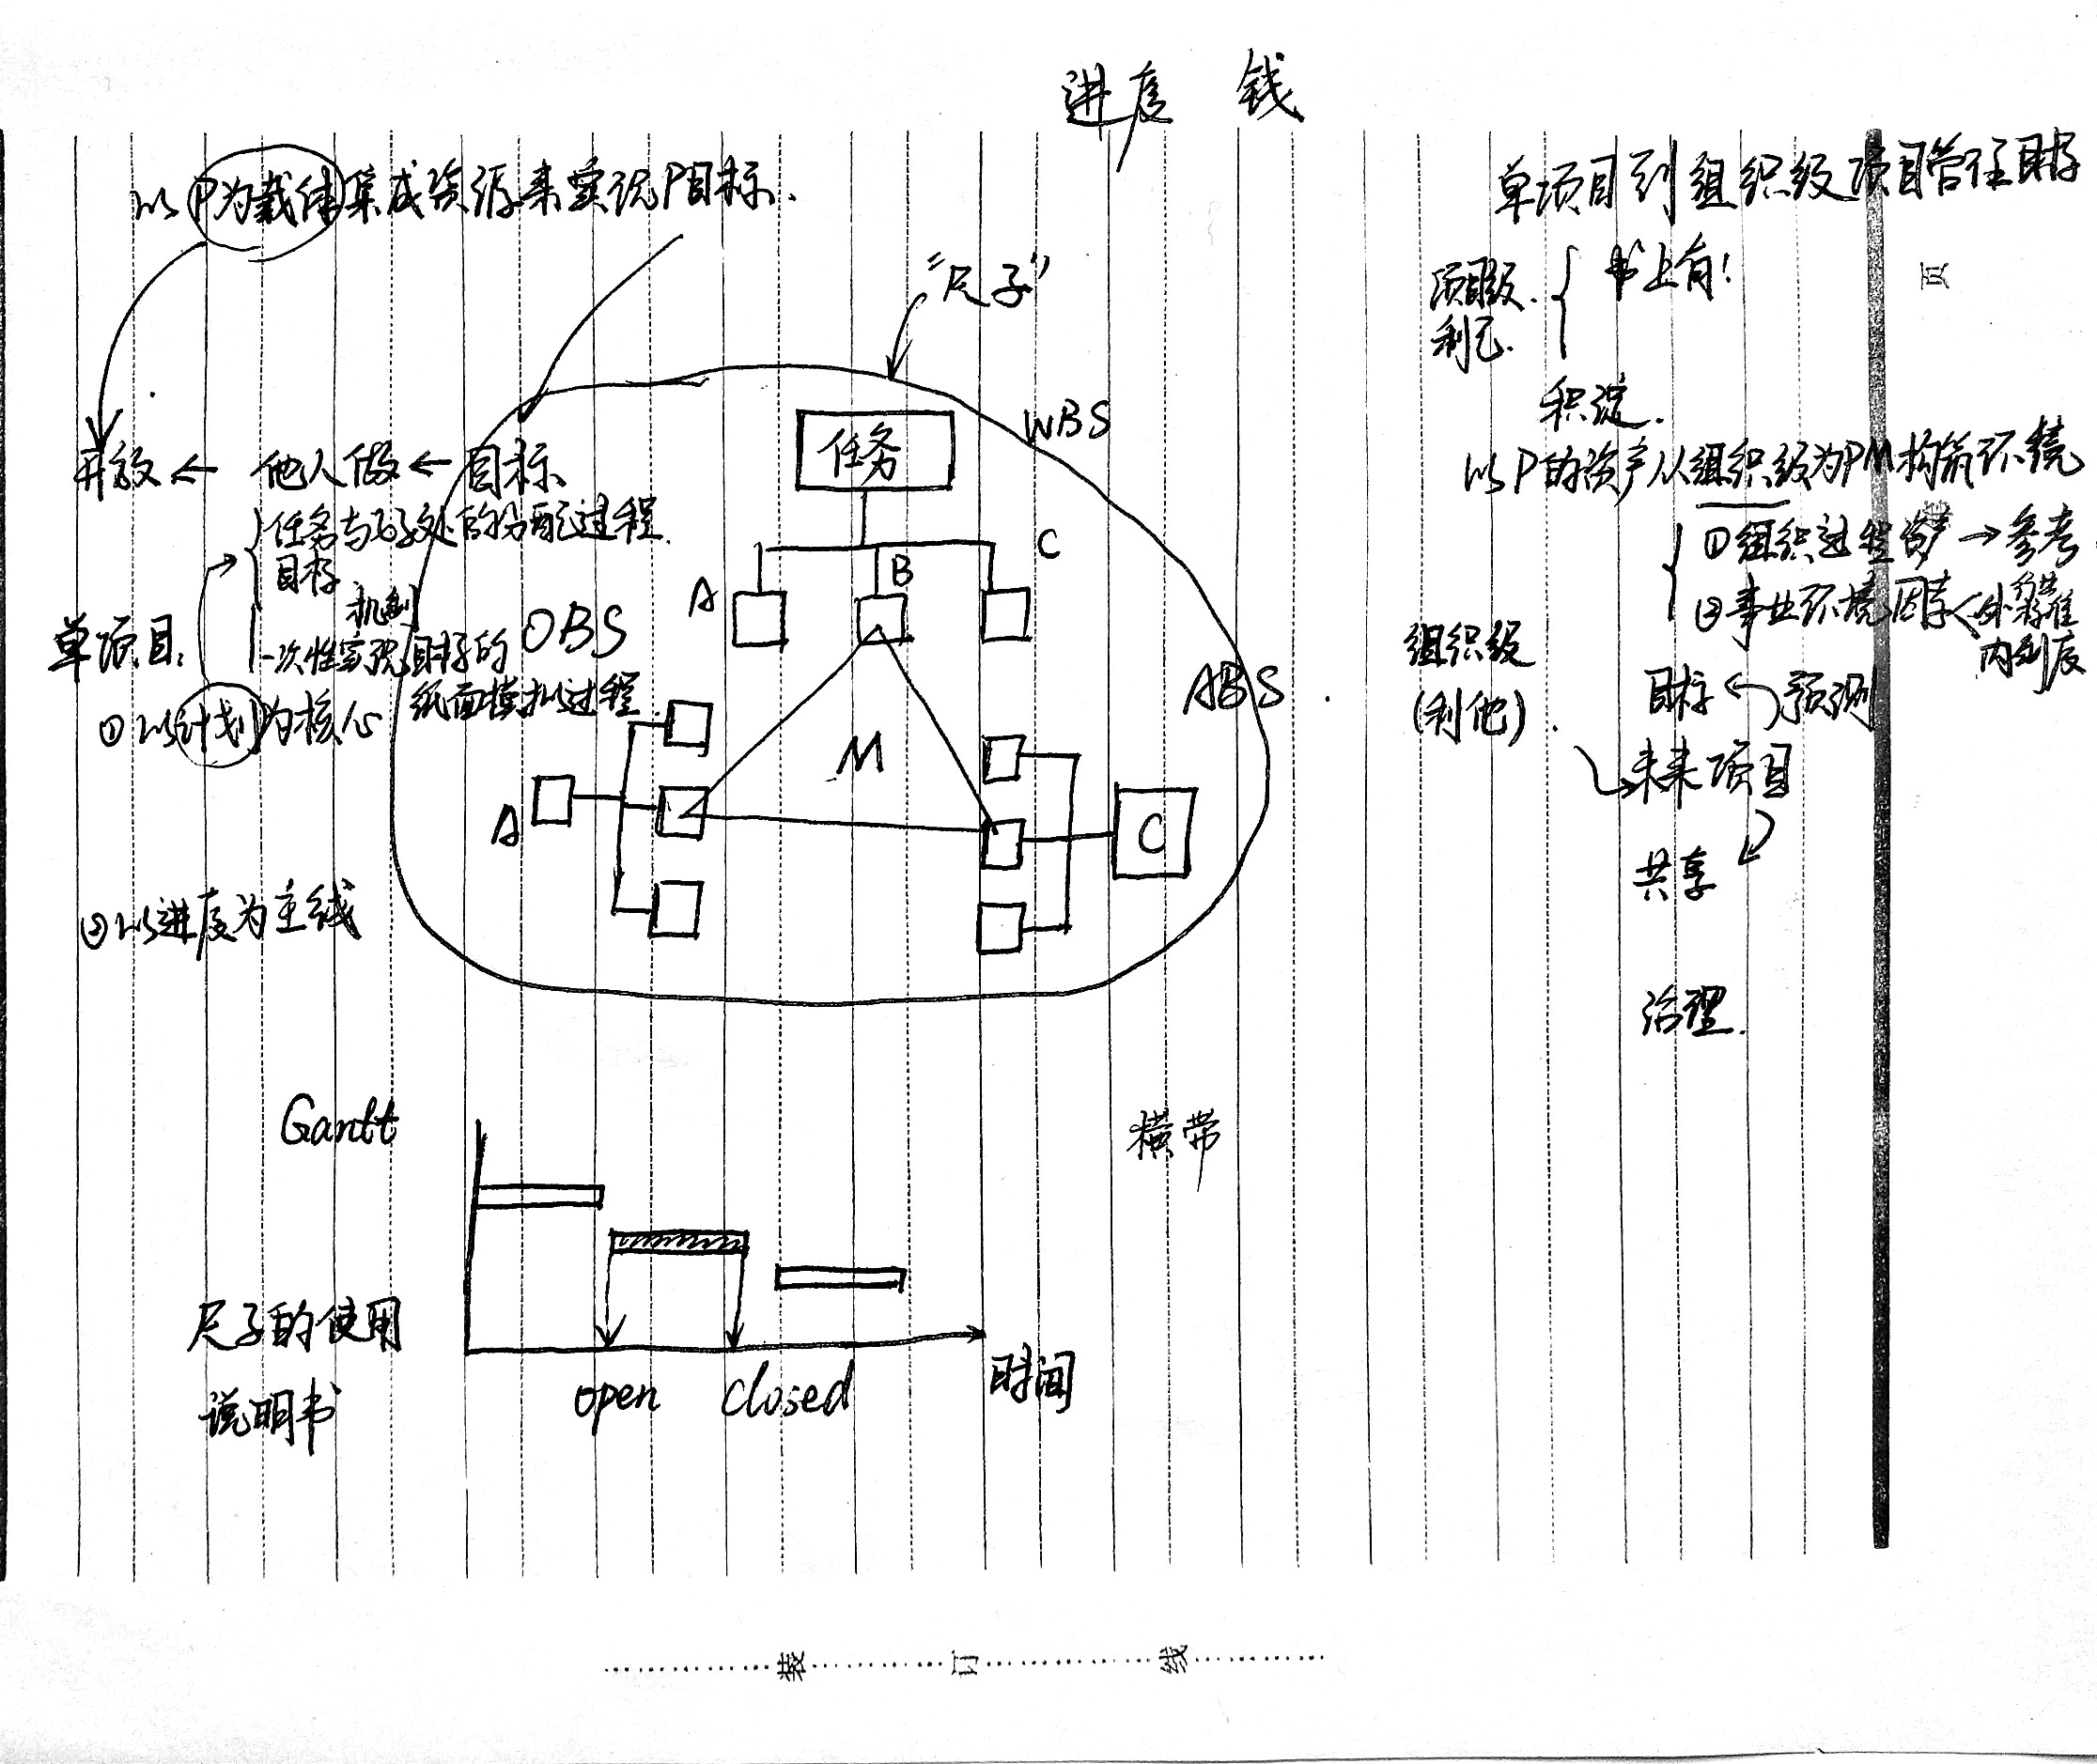 进度 钱
以P为载体集成资源来实现P目标.
"尺子"
开放 ← 他人做 ← 目标
任务与 的分配过程.
目标
机制
单项目:
一次性实现目标的
纸面模拟过程.
①以计划为核心
②以进度为主线
WBS
任务
A
B
C
OBS
ABS
M
A
C
Gantt
横带
尺子的使用
说明书
open
closed
时间
单项目到组织级项目管理目标
项目级.
利己.
书上有!
积淀.
以P的资产从组织级为PM构筑环境
①组织过程资产 → 参考
②事业环境因素
外 标准
内制度
组织级
(利他)
目标 预测
未来项目
共享
治理.
页
装 订 线